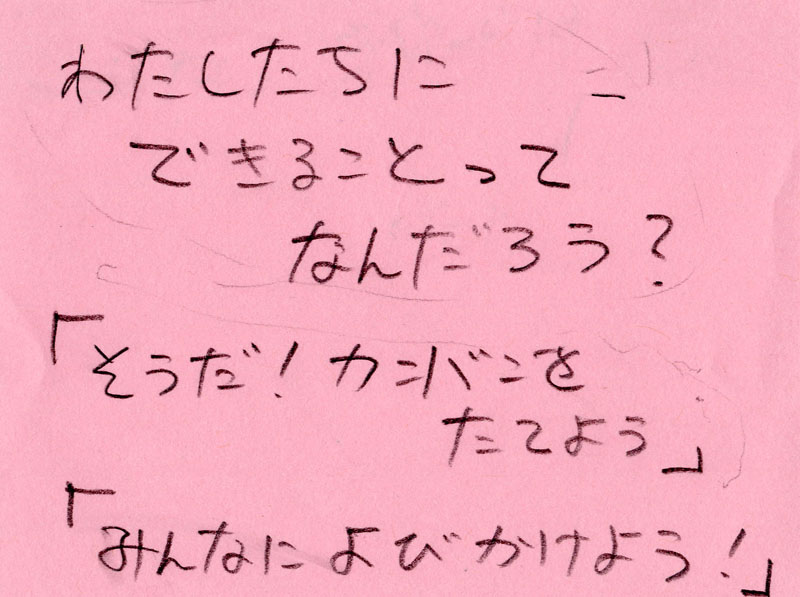 わたしたちに
できることって
なんだろう?
「そうだ!カンバンを
たてよう」
「みんなによびかけよう!」